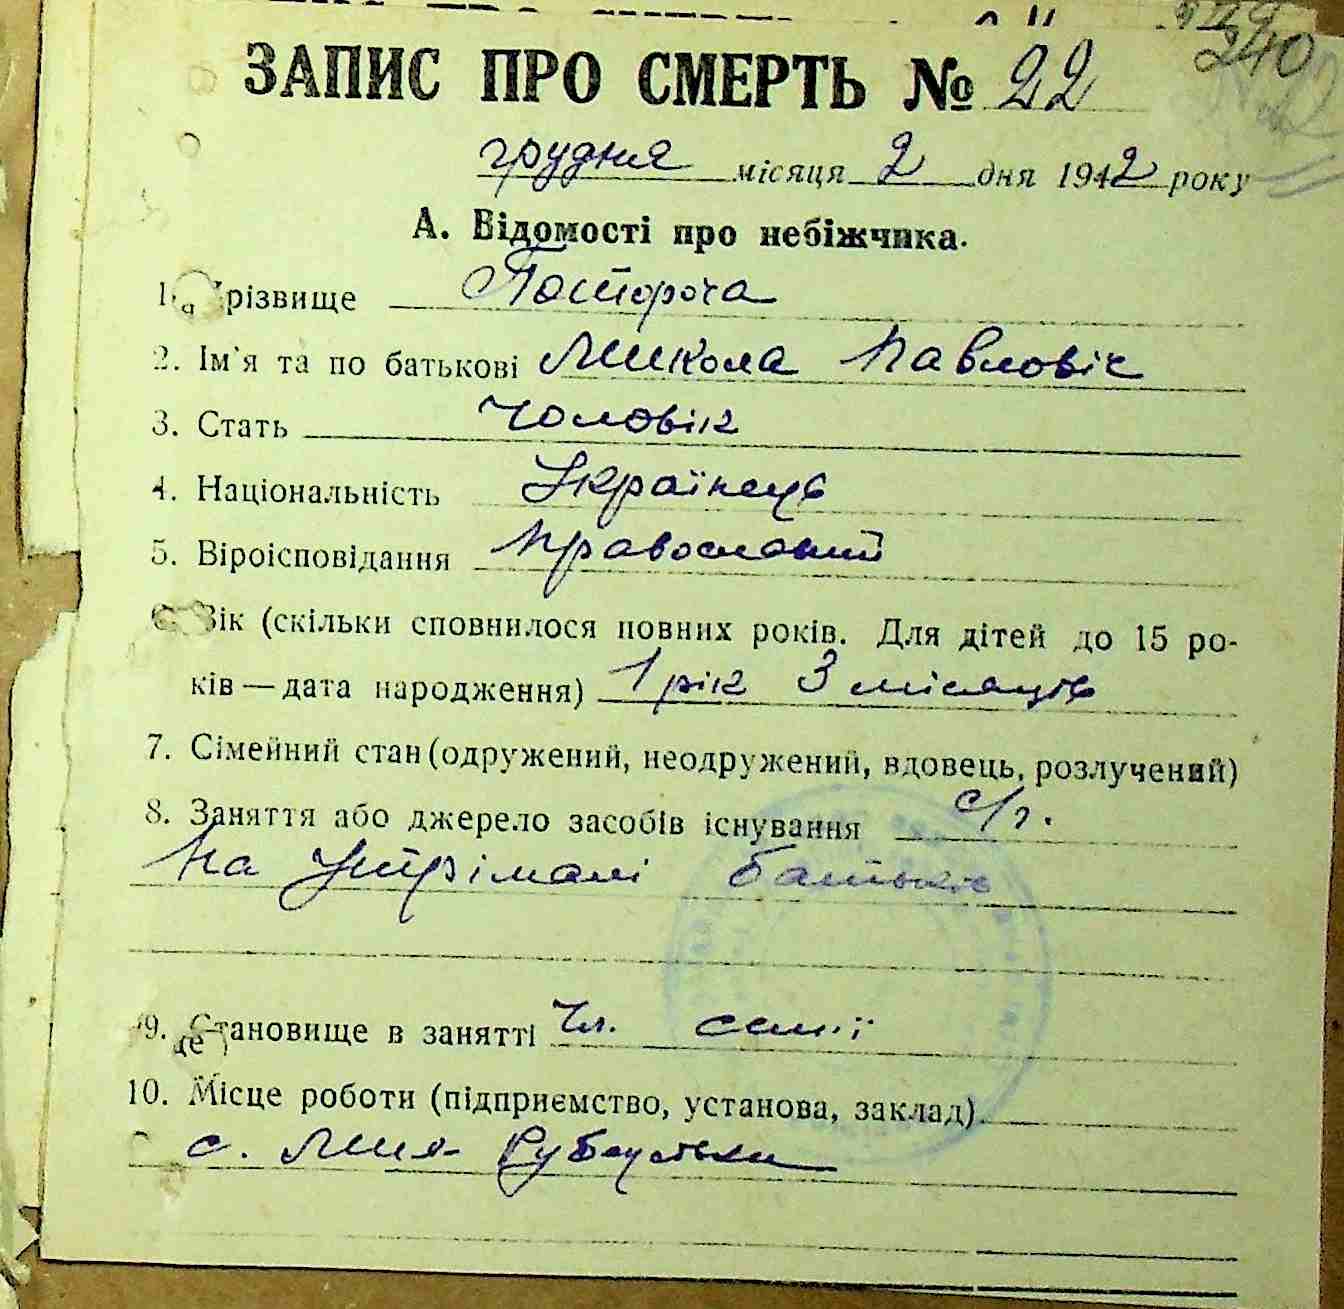 240
ЗАПИС ПРО СМЕРТЬ № 22
грудня місяця 2 дня 1942 року
А. Відомості про небіжчика.
1. Прізвище Постороча
2. Ім'я та по батькові Микола Павловіч
3. Стать чоловік
4. Національність Українець
5. Віроісповідання православний
6. Вік (скільки сповнилося повних років. Для дітей до 15 ро-
ків — дата народження) 1 рік 3 місяців
7. Сімейний стан (одружений, неодружений, вдовець, розлучений)
8. Заняття або джерело засобів існування с/г.
На утрімані батьків
9. Становище в занятті Чл. семії
10. Місце роботи (підприємство, установа, заклад).
с.